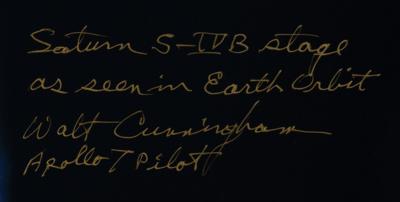 Saturn S-IVB stage
as seen in Earth Orbit
Walt Cunningham
Apollo 7 Pilot